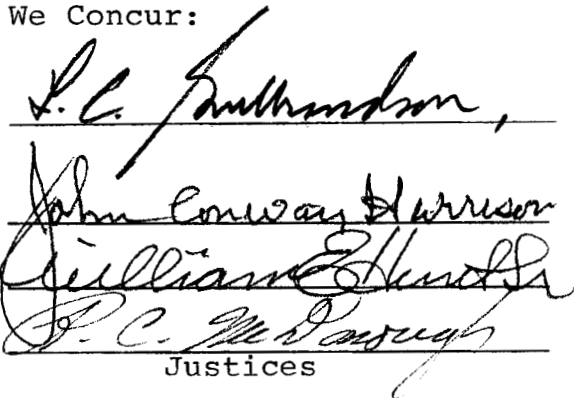 We Concur:
L. C. Gulbrandson,
John Conway Harrison
William E Hunt Sr
R. C. McDonough
Justices